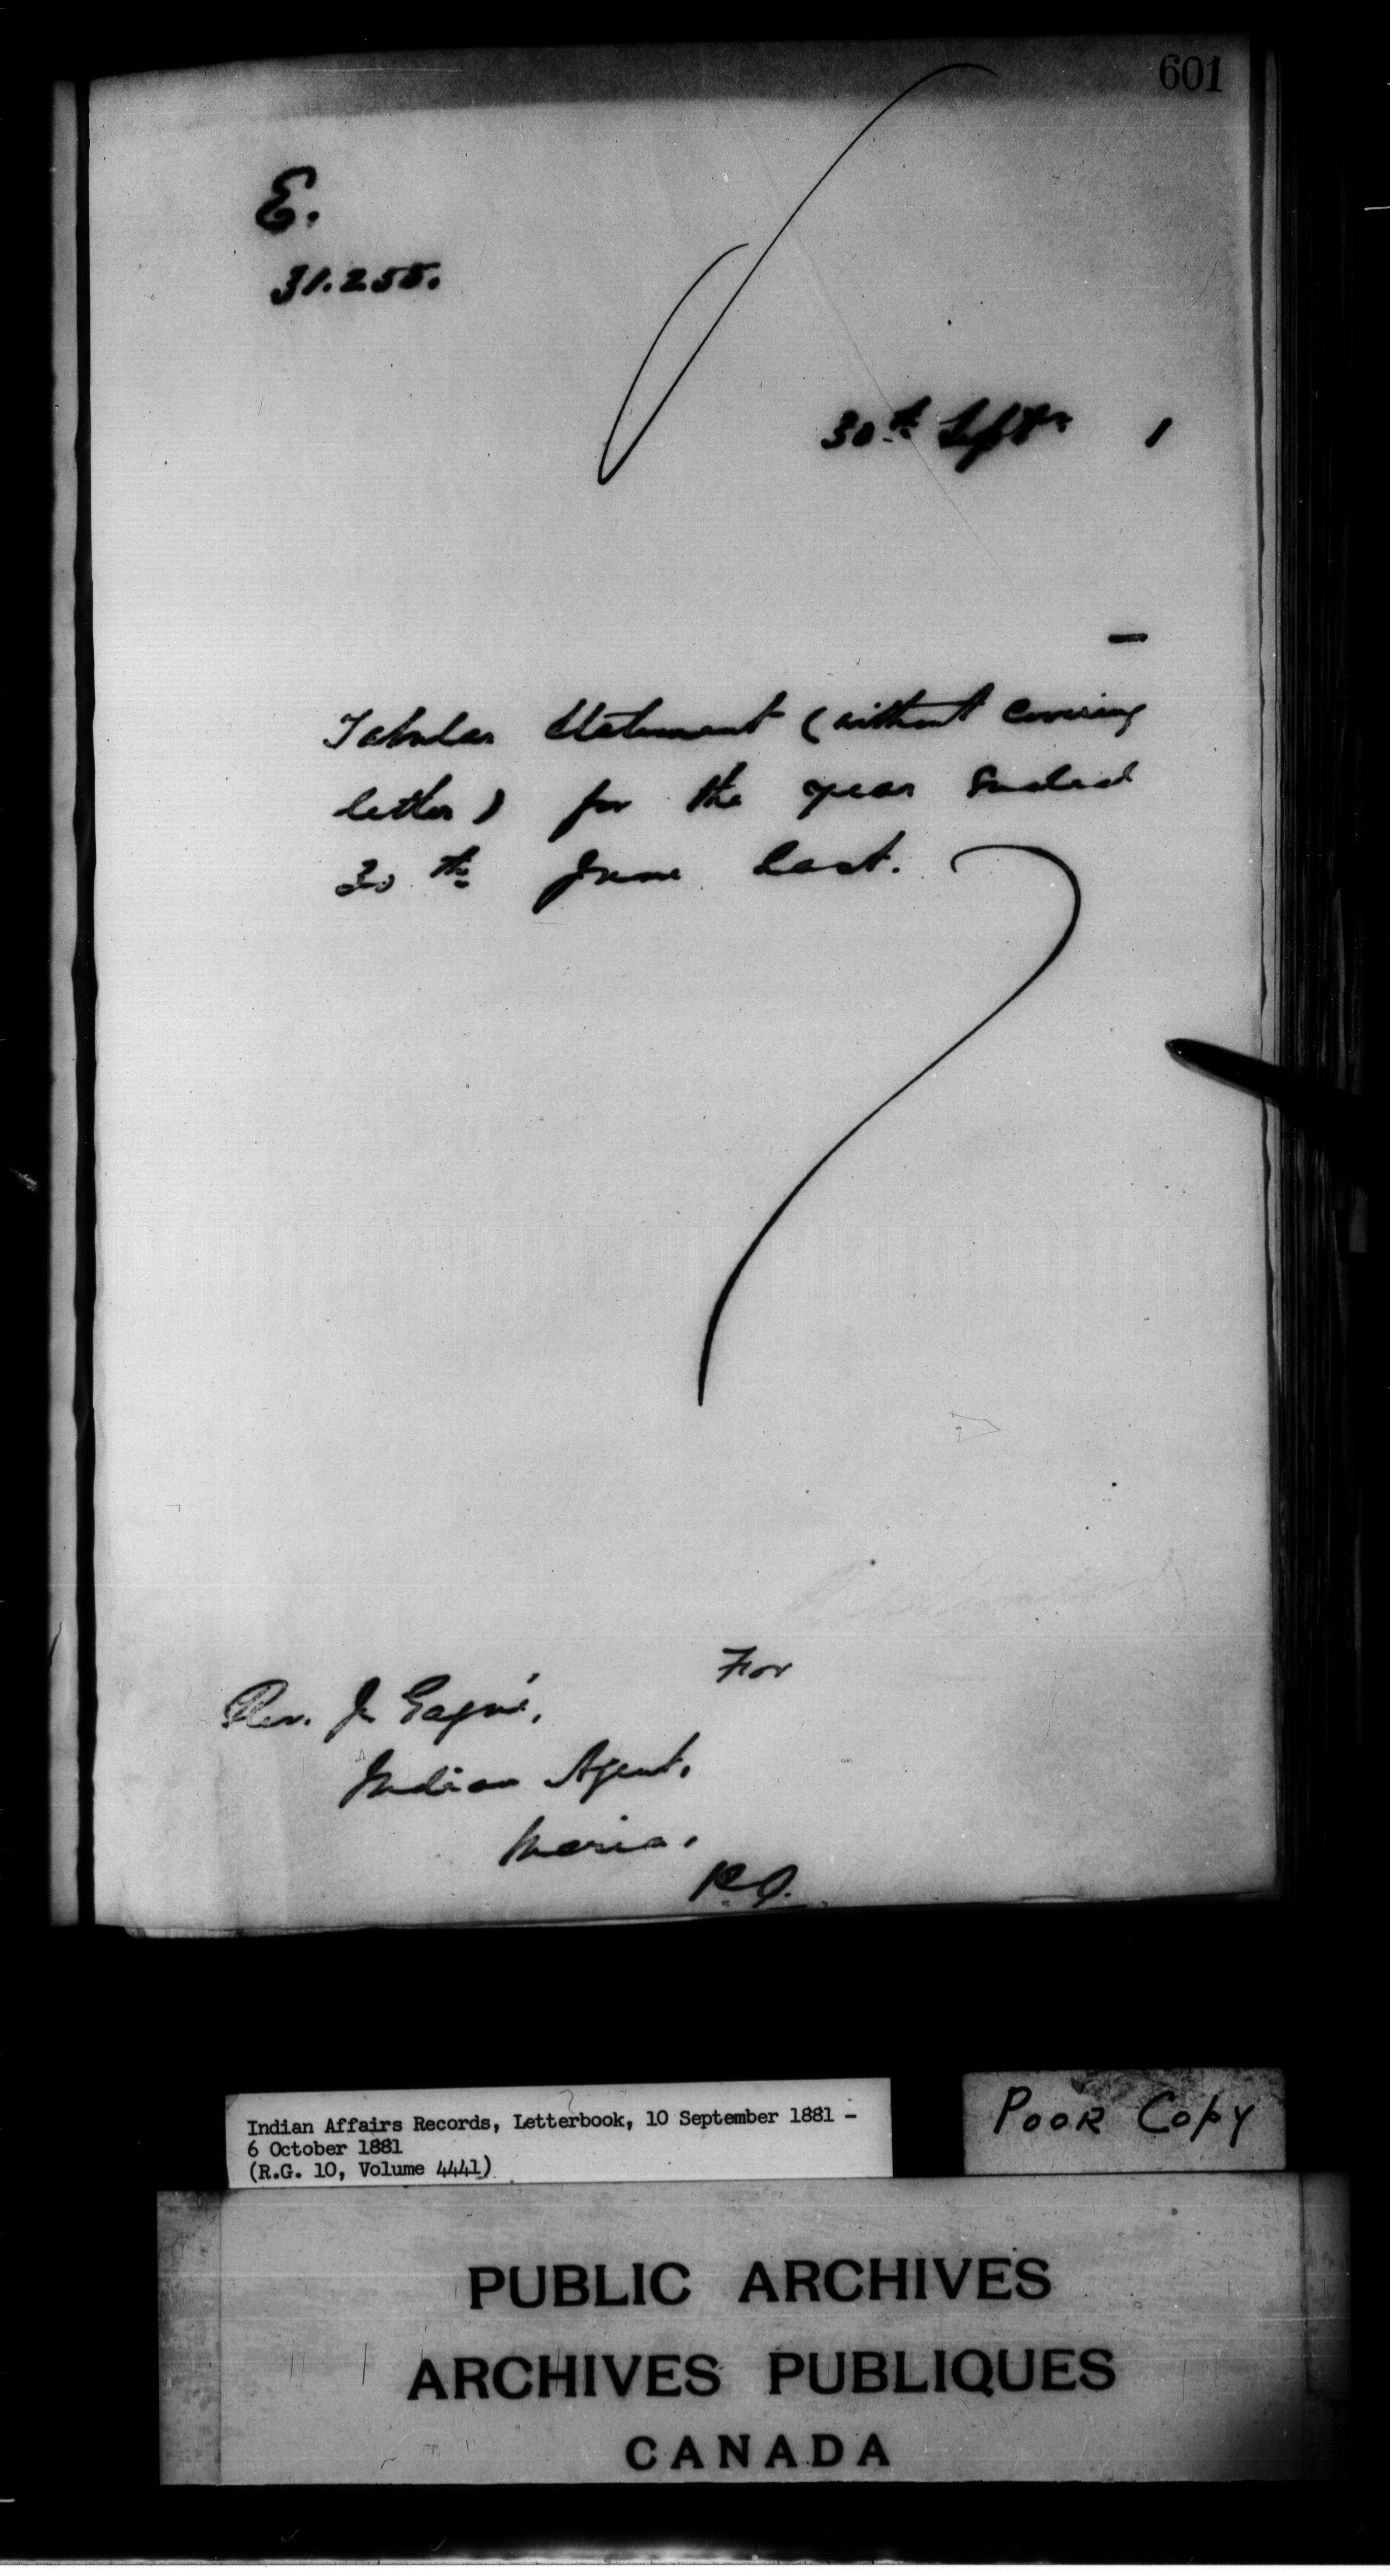 601
E.
31.255.
30th Septr 1
Tabular Statement (without covering
letter) for the year ended
30th June last.
For
Rev. J. Gagné,
Indian Agent,
Maria.
P.Q.
Indian Affairs Records, Letterbook, 10 September 1881 -
6 October 1881
(R.G. 10, Volume 4441)
POOR COPY
PUBLIC ARCHIVES
ARCHIVES PUBLIQUES
CANADA